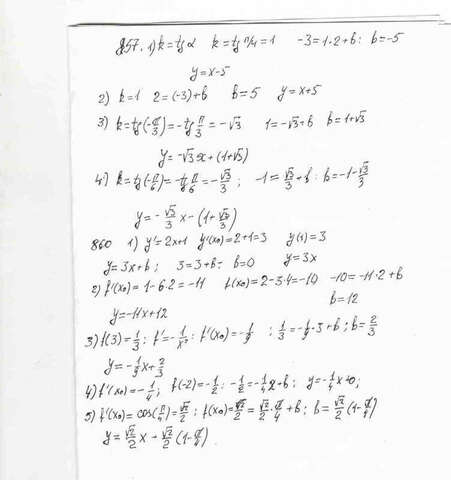 857. 1) k=tg α  k=tg π/4=1  -3=1·2+b: b=-5
y=x-5
2) k=1  2=(-3)+b  b=5  y=x+5
3) k=tg(-π/3)=-tg π/3=-√3  1=-√3+b  b=1+√3
y=-√3x+(1+√3)
4) k=tg(-π/6)=-tg π/6=-√3/3;  -1=√3/3+b: b=-1-√3/3
y=-√3/3 x-(1+√3/3)
860  1) y'=2x+1  y'(x₀)=2+1=3  y(1)=3
y=3x+b;  3=3+b:  b=0  y=3x
2) f'(x₀)=1-6·2=-11  f(x₀)=2-3·4=-10  -10=-11·2+b
b=12
y=-11x+12
3) f(3)=1/3; f'=-1/x²: f'(x₀)=-1/9  ; 1/3=-1/9·3+b; b=2/3
y=-1/9x+2/3
4) f'(x₀)=-1/4; f(-2)=-1/2: -1/2=-1/4·2+b; y=-1/4x+0;
5) f'(x₀)=cos(π/4)=√2/2; f(x₀)=√2/2=√2/2·π/4+b; b=√2/2(1-π/4)
y=√2/2x+√2/2(1-π/4).